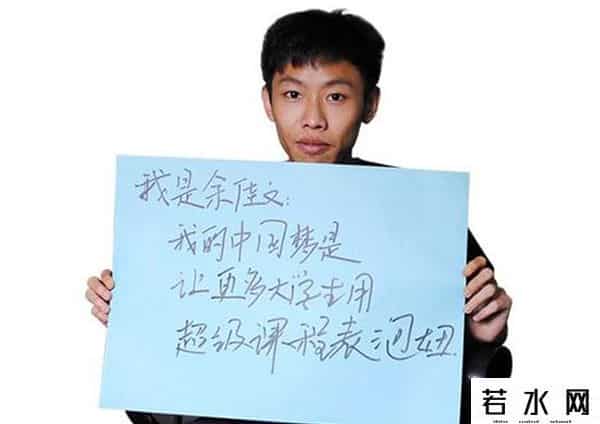 我是余佳文:
我的中国梦是
让更多大学生用
超级课程表泡妞.
若水网